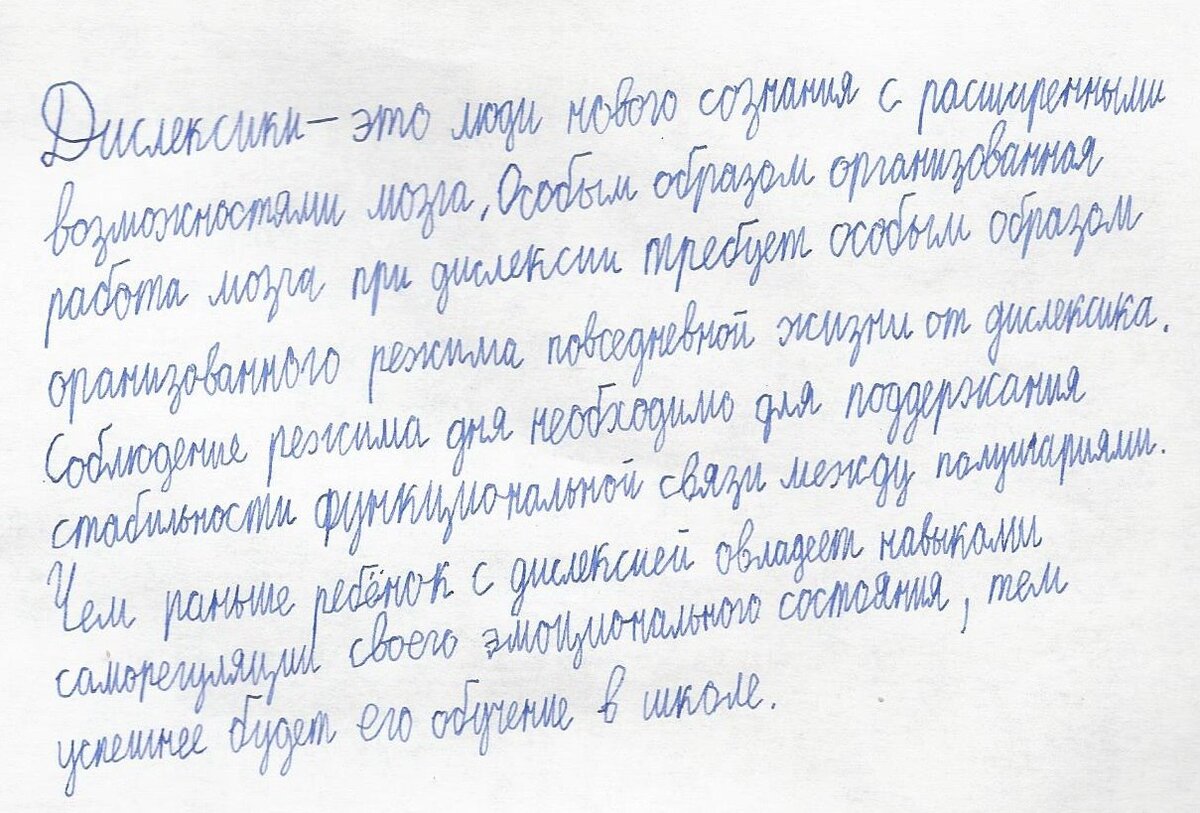 Дислексики — это люди нового сознания с расширенными
возможностями мозга. Особым образом организованная
работа мозга при дислексии требует особым образом
оранизованного режима повседневной жизни от дислексика.
Соблюдение режима дня необходимо для поддержания
стабильности функциональной связи между полушариями.
Чем раньше ребёнок с дислексией овладеет навыками
саморегуляции своего эмоционального состояния, тем
успешнее будет его обучение в школе.